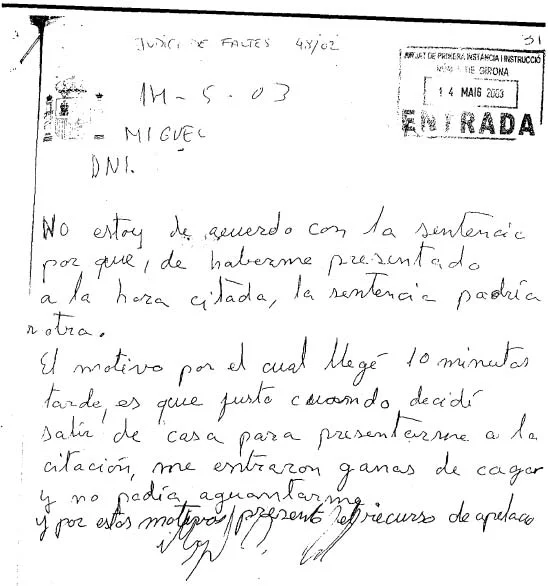 31
JUDICI DE FALTES 48/02
JUTJAT DE PRIMERA INSTÀNCIA I INSTRUCCIÓ
DE GIRONA
14 MAIG 2003
ENTRADA
14-5-03
MIGUEL
DNI.
No estoy de acuerdo con la sentencia
por que, de haberme presentado
a la hora citada, la sentencia podría
otra.
El motivo por el cual llegé 10 minutos
tarde, es que justo cuando decidí
salir de casa para presentarme a la
citación, me entraron ganas de cagar
y no podía aguantarme
y por estos motivos presento el recurso de apelaco